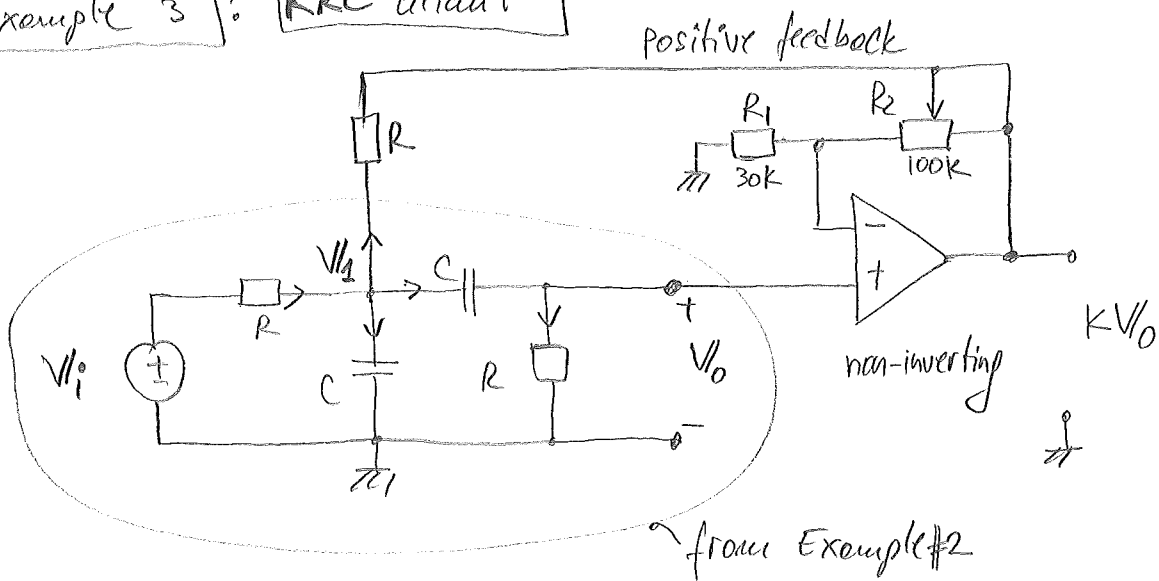 Example 3 : RRC circuit
positive feedback
R
R1
30K
R2
100K
V1
C
R
Vi
C
R
+
V0
-
-
+
non-inverting
KV0
from Example #2